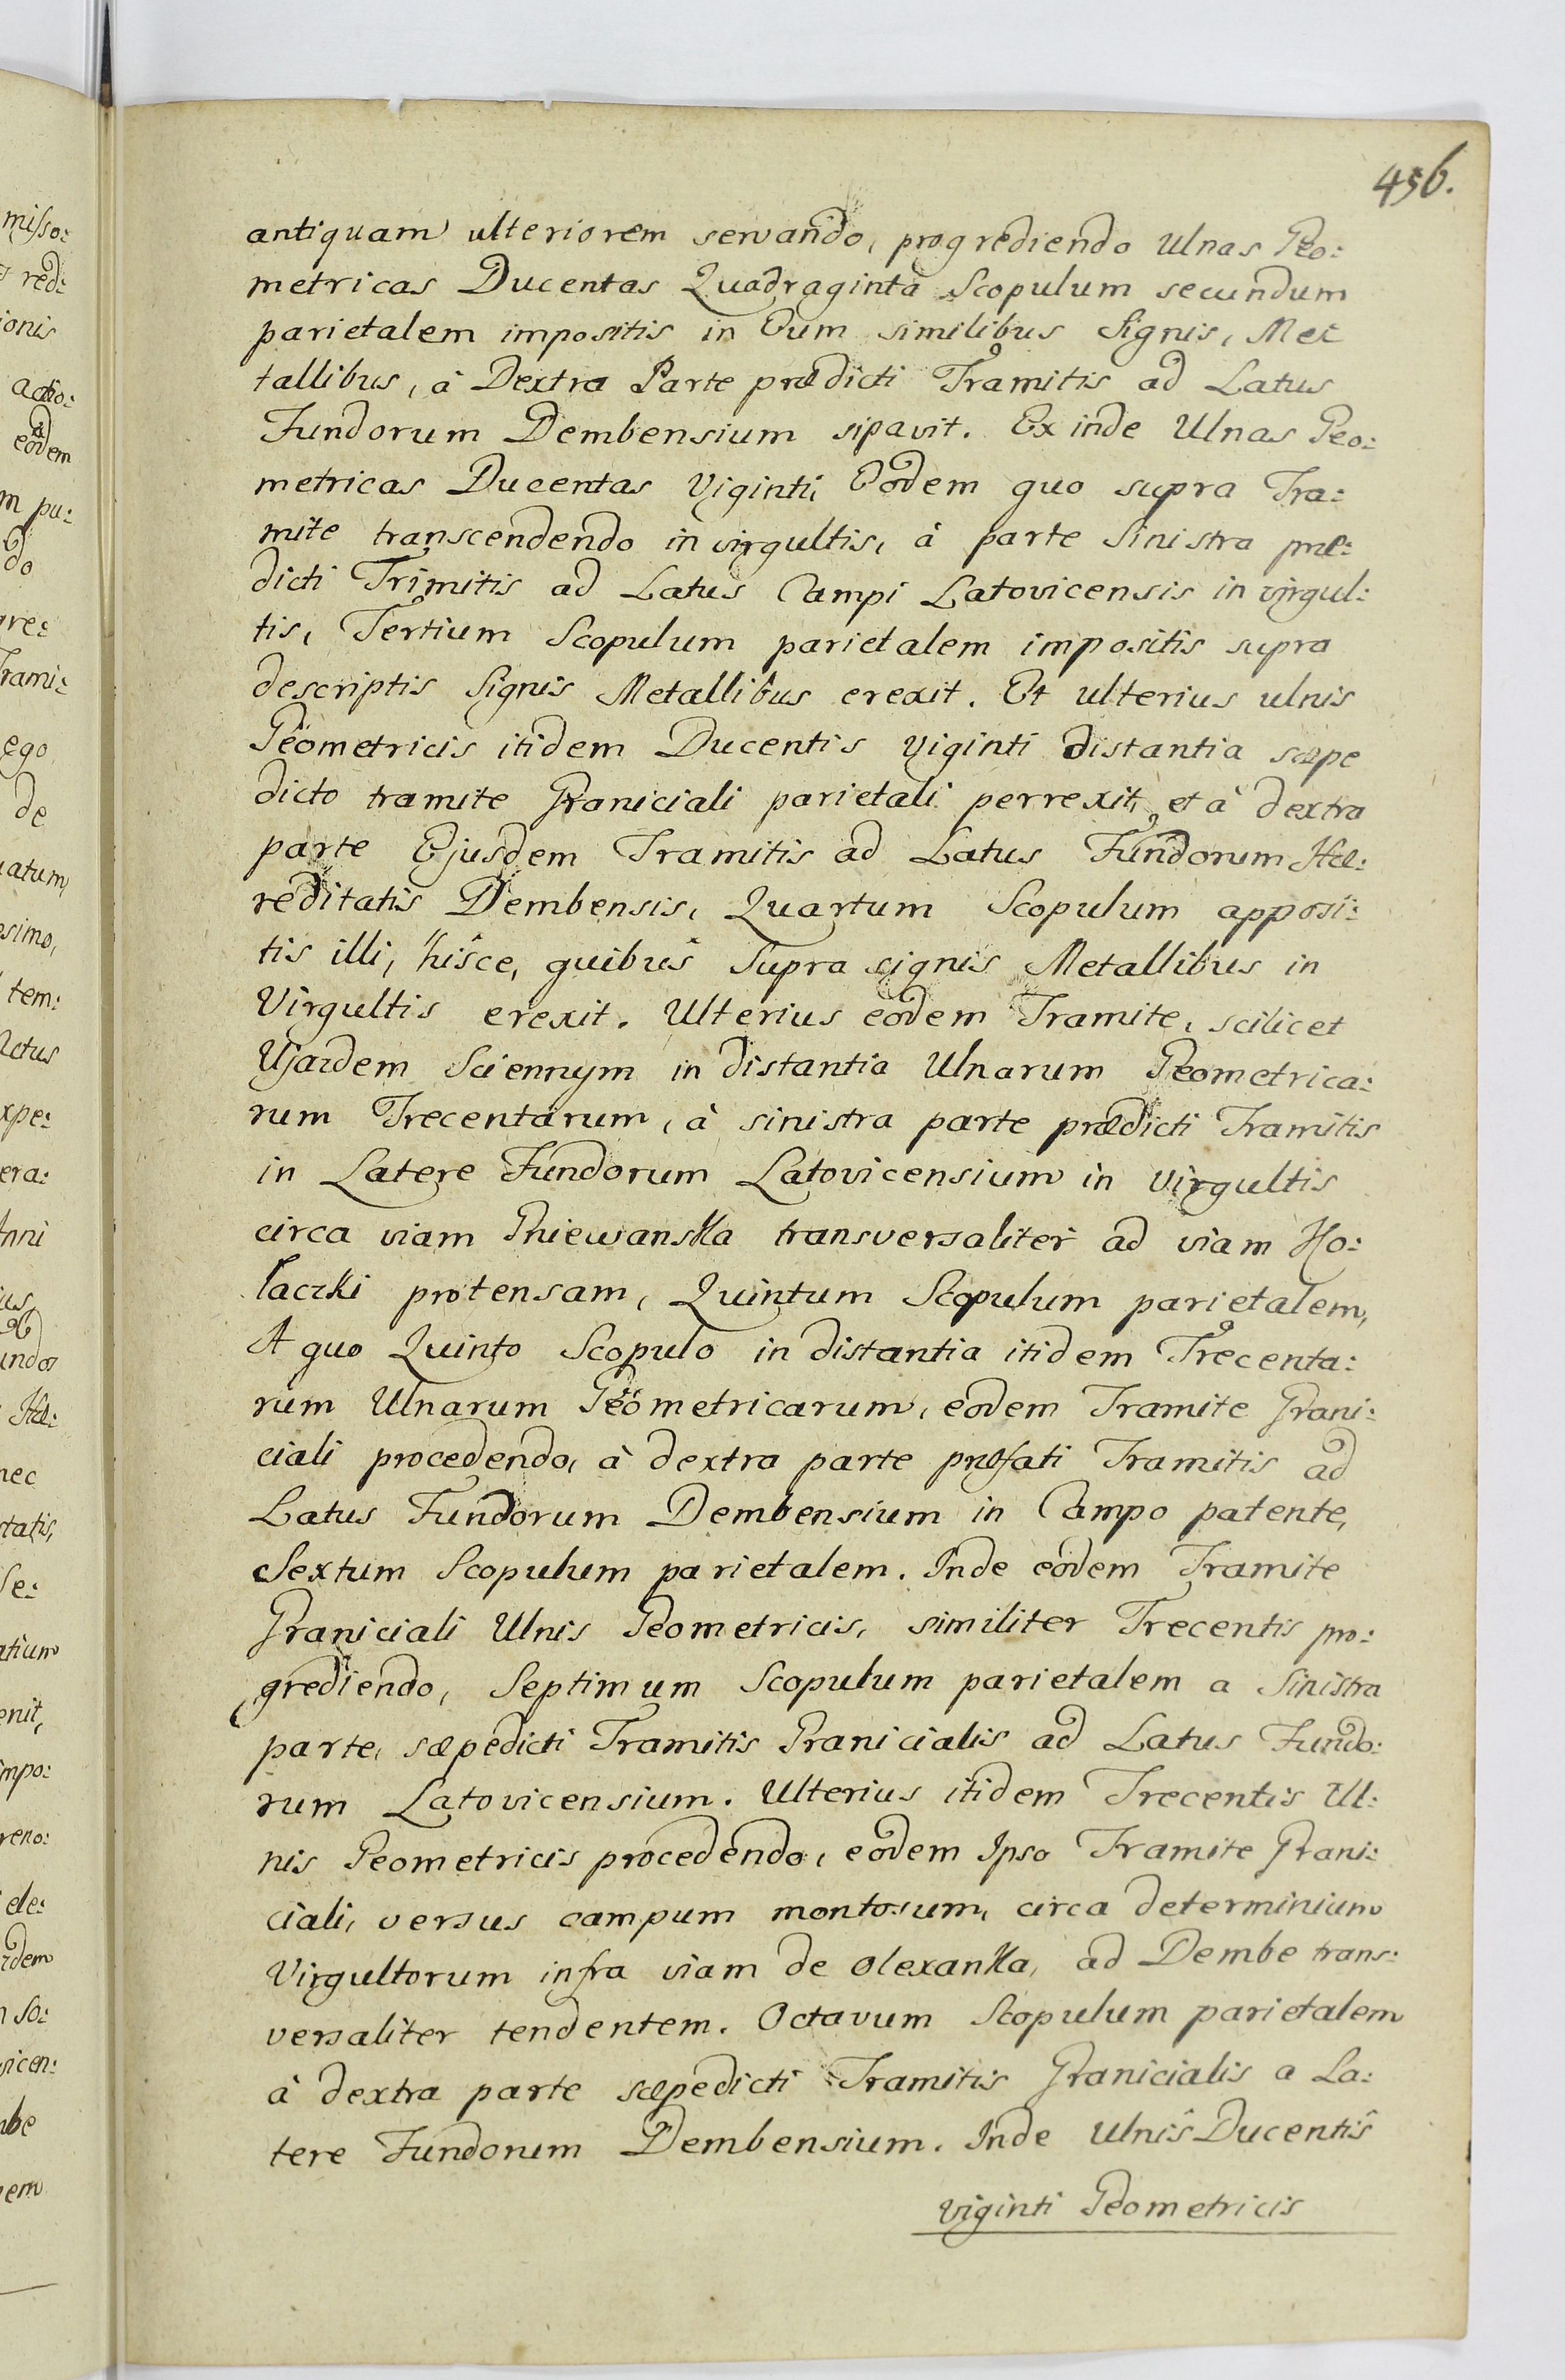 456.
antiquam ulteriorem servando, progrediendo Ulnas Geo:
metricas Ducentas Quadraginta Scopulum secundum
parietalem impositis in Eum similibus Signis, Met
tallibus, à Dextra Parte prædicti Tramitis ad Latus
Fundorum Dembensium sipavit. Ex inde Ulnas Geo:
metricas Ducentas Viginti, Eodem quo supra Tra:
mite transcendendo in virgultis, à parte Sinistra præ:
dicti Trimitis ad Latus Campi Latovicensis in virgul:
tis, Tertium Scopulum parietalem impositis supra
descriptis Signis Metallibus erexit. Et ulterius ulnis
Geometricis itidem Ducentis viginti distantia sæpe
dicto tramite Graniciali parietali perrexit, et à dextra
parte Ejusdem Tramitis ad Latus Fundorum Hæ:
reditatis Dembensis, Quartum Scopulum apposi:
tis illi, hisce, quibus supra signis Metallibus in
Virgultis erexit. Ulterius eodem Tramite, scilicet
Ujazdem Sciennym in distantia Ulnarum Geometrica:
rum Trecentarum, à sinistra parte prædicti Tramitis
in Latere Fundorum Latovicensium in Virgultis
circa viam Gniewanska transversaliter ad viam Ho:
laczki protensam, Quintum Scopulum parietalem,
A quo Quinto Scopulo in distantia itidem Trecenta:
rum Ulnarum Geometricarum, eodem Tramite Grani:
ciali procedendo, à dextra parte præfati Tramitis ad
Latus Fundorum Dembensium in Campo patente,
Sextum Scopulum parietalem. Inde eodem Tramite
Graniciali Ulnis Geometricis, similiter Trecentis pro:
grediendo, Septimum Scopulum parietalem a Sinistra
parte, sæpedicti Tramitis Granicialis ad Latus Fundo:
rum Latovicensium. Ulterius itidem Trecentis Ul:
nis Geometricis procedendo, eodem Ipso Tramite Grani:
ciali, versus campum montosum, circa determinium
Virgultorum infra viam de Olexanka, ad Dembe trans:
versaliter tendentem. Octavum Scopulum parietalem
à dextra parte sæpedicti Tramitis Granicialis a La:
tere Fundorum Dembensium. Inde Ulnis Ducentis
viginti Geometricis